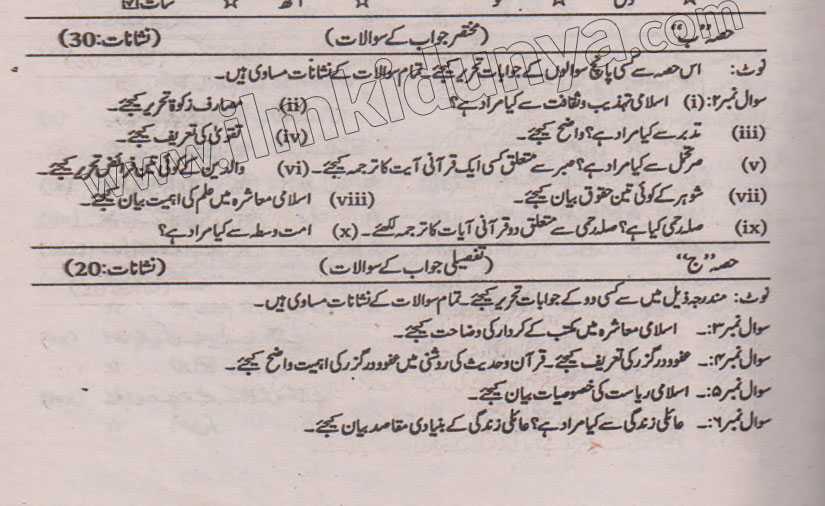 سات ☑ ☆ آٹھ ☆
حصہ ”ب“ (مختصر جواب کے سوالات) (نشانات:30)
نوٹ: اس حصہ سے کسی پانچ سوالوں کے جوابات تحریر کیجئے۔ تمام سوالات کے نشانات مساوی ہیں۔
سوال نمبر۲: (i) اسلامی تہذیب و ثقافت سے کیا مراد ہے؟ (ii) مصارف زکوٰۃ تحریر کیجئے۔
(iii) تدبر سے کیا مراد ہے؟ واضح کیجئے۔ (iv) تقویٰ کی تعریف کیجئے۔
(v) صبر و تحمل سے کیا مراد ہے؟ صبر سے متعلق کسی ایک قرآنی آیت کا ترجمہ کیجئے۔ (vi) والدین کے کوئی تین فرائض تحریر کیجئے۔
(vii) شوہر کے کوئی تین حقوق بیان کیجئے۔ (viii) اسلامی معاشرہ میں علم کی اہمیت بیان کیجئے۔
(ix) صلہ رحمی کیا ہے؟ صلہ رحمی سے متعلق دو قرآنی آیات کا ترجمہ لکھئے۔ (x) امت وسطہ سے کیا مراد ہے؟
حصہ ”ج“ (تفصیلی جواب کے سوالات) (نشانات:20)
نوٹ: مندرجہ ذیل میں سے کسی دو کے جوابات تحریر کیجئے۔ تمام سوالات کے نشانات مساوی ہیں۔
سوال نمبر۳:۔ اسلامی معاشرہ میں مکتب کے کردار کی وضاحت کیجئے۔
سوال نمبر۴:۔ عفو و درگزر کی تعریف کیجئے۔ قرآن و حدیث کی روشنی میں عفو و درگزر کی اہمیت واضح کیجئے۔
سوال نمبر۵:۔ اسلامی ریاست کی خصوصیات بیان کیجئے۔
سوال نمبر۶:۔ عائلی زندگی سے کیا مراد ہے؟ عائلی زندگی کے بنیادی مقاصد بیان کیجئے۔
www.ilmkidunya.com